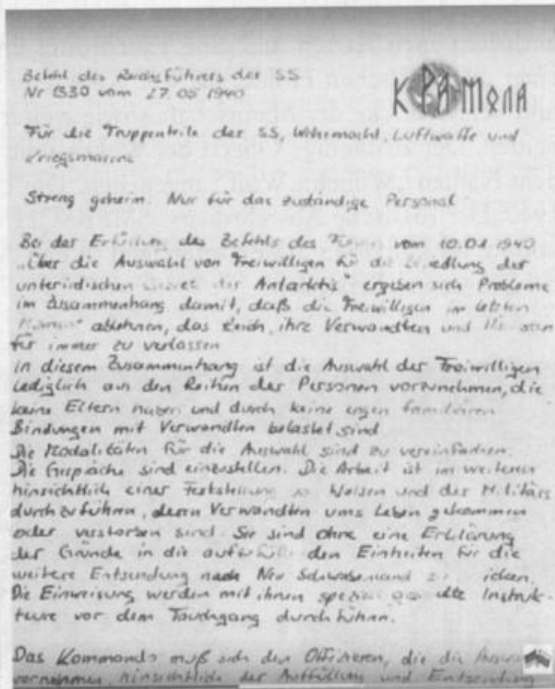 Befehl des Reichsführers der SS
Nr 1330 vom 27.05 1940
КРАМОЛА
Für die Truppenteile der SS, Wehrmacht, Luftwaffe und
Kriegsmarine
Streng geheim. Nur für das zuständige Personal
Bei der des Befehls des vom 10.01.1940
„Über die Auswahl von Freiwilligen für die der
unterirdischen der Antarktis" ergeben sich Probleme
im Zusammenhang damit, daß die Freiwilligen im letzten
ablehnen, das Reich, ihre Verwandten und
für immer zu verlassen
in diesem Zusammenhang ist die Auswahl der Freiwilligen
lediglich an den Reihen der Personen vorzunehmen, die
keine Eltern haben und durch keine engen familiären
Bindungen mit Verwandten belastet sind
Die Modalitäten für die Auswahl sind zu vereinfachen.
Die Gespräche sind einzustellen. Die Arbeit ist im weiteren
hinsichtlich einer Feststellung Waisen und der Militärs
durchzuführen, deren Verwandten ums Leben gekommen
oder verstorben sind. Sie sind ohne eine Erklärung
der Gründe in die den Einheiten für die
weitere Entsendung nach Neu
Die Einweisung werden mit ihnen
vor dem Tauchgang durchführen.
Das Kommando muß sich den Offizieren, die die
vornehmen, hinsichtlich der Auffüllung und Entsendung